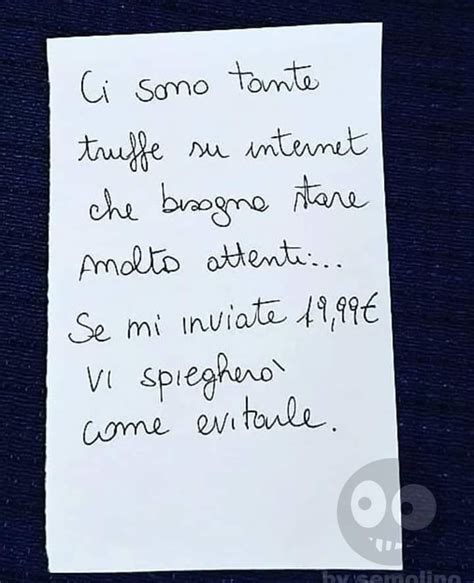 Ci sono tante
truffe su internet
che bisogna stare
molto attenti:...
Se mi inviate 19,99€
Vi spiegherò
come evitarle.
by semolino